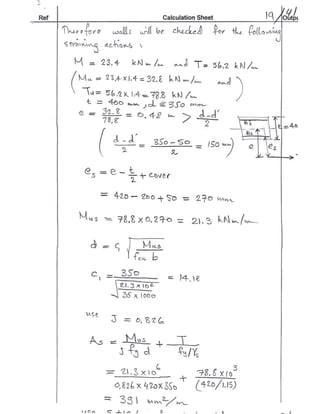 Ref Calculation Sheet 19/141 Outpu
Therefore walls will be checked for the following
straining actions :
M = 23.4 kN m/m and T= 56.2 kN/m
( Mu = 23.4x1.4 = 32.8 kN m/m and )
Tu = 56.2x1.4 = 78.8 kN/m
t = 400 mm , d = 350 mm
e = 32.8 / 78.8 = 0.42 m > d-d' / 2
( d-d' / 2 = 350-50 / 2 = 150 mm )
e es
es = e - t/2 + cover
= 420 - 200 + 50 = 270 mm
Mus = 78.8 x 0.270 = 21.3 kN m/m
d = C1 √ Mus / fcu b
C1 = 350 / √ 21.3 x 10⁶ / 35 x 1000 = 14.18
use J = 0.826
As = Mus / J fy d + T / fy/γs
= 21.3 x 10⁶ / 0.826 x 420 x 350 + 78.8 x 10³ / (420/1.15)
= 391 mm²/m